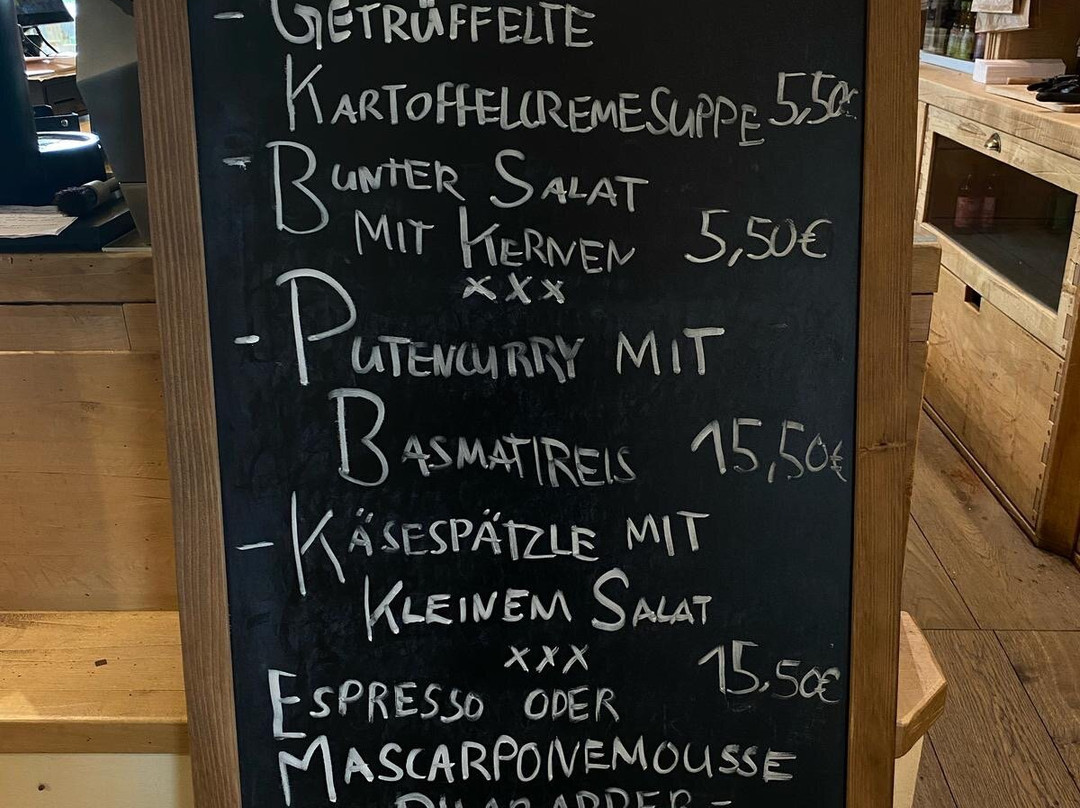 - GETRÜFFELTE
KARTOFFELCREMESUPPE 5,50€
- BUNTER SALAT
MIT KERNEN 5,50€
xxx
- PUTENCURRY MIT
BASMATIREIS 15,50€
- KÄSESPÄTZLE MIT
KLEINEM SALAT
xxx 15,50€
ESPRESSO ODER
MASCARPONEMOUSSE